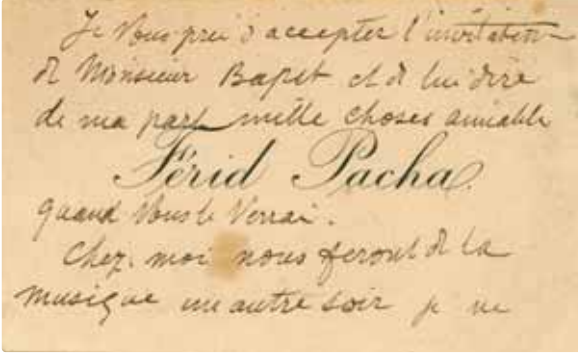 Je vous prie d'accepter l'invitation
de Monsieur Bapst et de lui dire
de ma part mille choses aimable
Férid Pacha.
quand vous le verrai.
Chez moi nous feront de la
musique un autre soir je ne